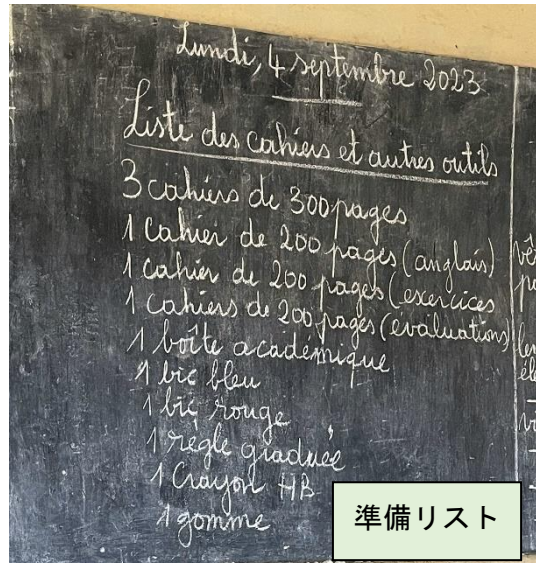 Lundi, 4 septembre 2023
Liste des cahiers et autres outils
3 cahiers de 300 pages
1 Cahier de 200 pages (anglais)
1 cahier de 200 pages (exercices
1 cahiers de 200 pages (évaluations)
1 boîte académique
1 bic bleu
1 bic rouge
1 règle graduée
1 Crayon HB
1 gomme
準備リスト